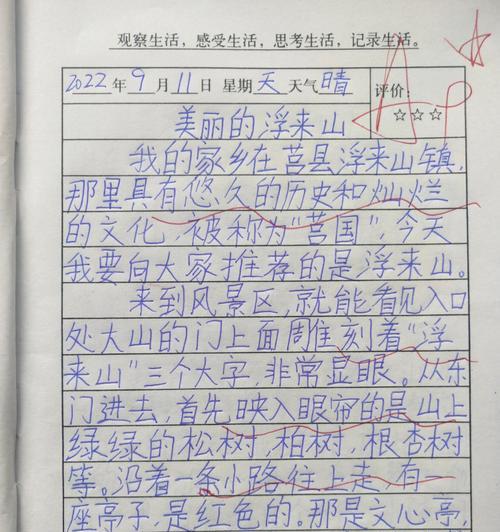 观察生活，感受生活，思考生活，记录生活。
2022年9月11日 星期天 天气晴 评价：
☆☆☆
美丽的浮来山
我的家乡在莒县浮来山镇，
那里具有悠久的历史和灿烂
的文化，被称为“莒国”，今天
我要向大家推荐的是浮来山。
来到风景区，就能看见入口
处大山的门上面雕刻着“浮
来山”三个大字，非常显眼。从东
门进去，首先映入眼帘的是山上
绿绿的松树，柏树，根杏树
等。沿着一条小路往上走，有一
座亭子，是红色的。那是文心亭，